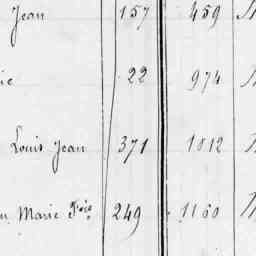 Jean 157 459
22 974
Louis Jean 371 1012
Marie Fois 249 1160